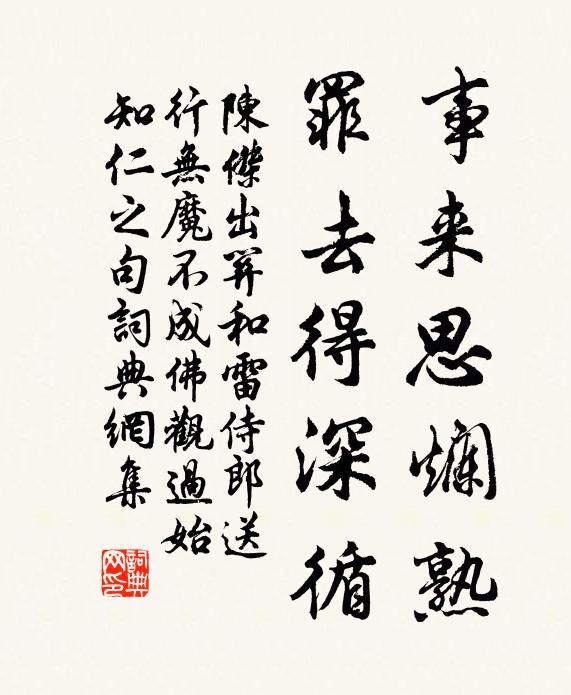 事来思爛熟
罪去得深循
陳傑出笄和雷侍郎送
行無魔不成佛觀過始
知仁之句詞典網集
詞典网印